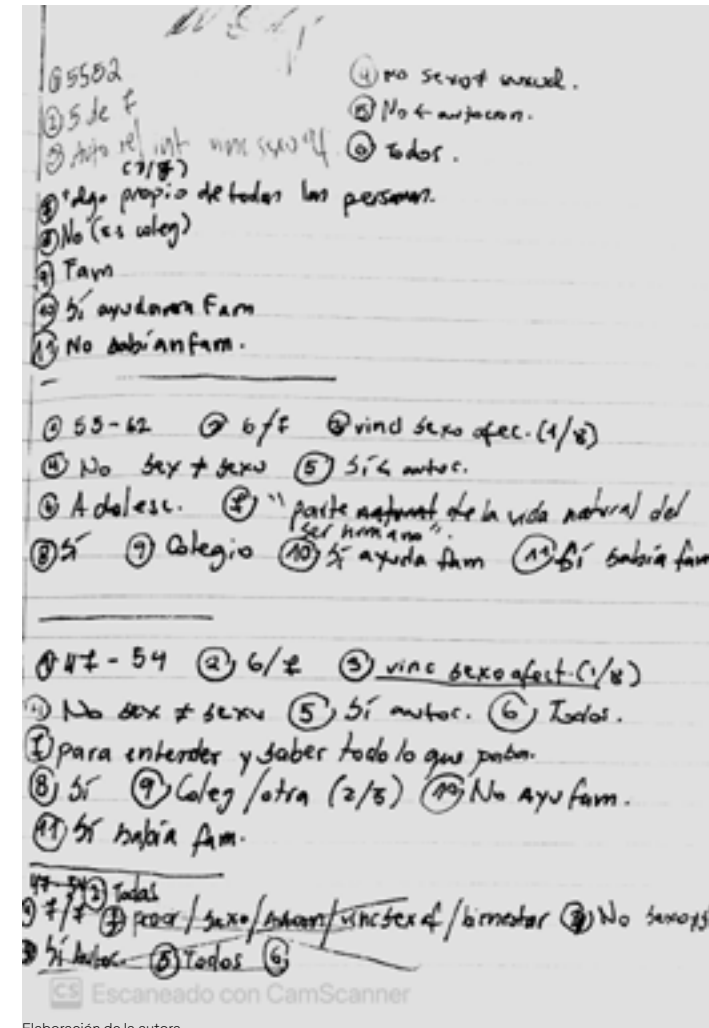 5582 ④ no sexo ≠ sexual.
② 5 de 7 ⑤ No ← autocon.
③ Auto rel int vinc sexo af ⑥ Todos.
(7/8)
⑦ "algo propio de todas las personas.
⑧ No (es coleg)
⑨ Fam
⑩ Sí ayudaron Fam
⑪ No sabían fam.
① 55-62 ② 6/7 ③ vincl sexo afec. (1/8)
④ No sex ≠ sexu ⑤ Sí ← autoc.
⑥ Adolesc. ⑦ "parte natural de la vida natural del
ser humano".
⑧ Sí ⑨ Colegio ⑩ Sí ayuda fam ⑪ Sí sabía fam
① 47-54 ② 6/7 ③ vinc sexo afect. (1/8)
④ No sex ≠ sexu ⑤ Sí autoc. ⑥ Todos.
⑦ para entender y saber todo lo que pasa.
⑧ Sí ⑨ Coleg/otra (2/3) ⑩ No Ayu fam.
⑪ Sí sabía fam.
47-54 ② Todas
7/7 ③ procr/sexo/ /vinc sex af/bienestar ④ No
Sí autoc. ⑤ Todos ⑥
CS Escaneado con CamScanner
Elaboración de la autora